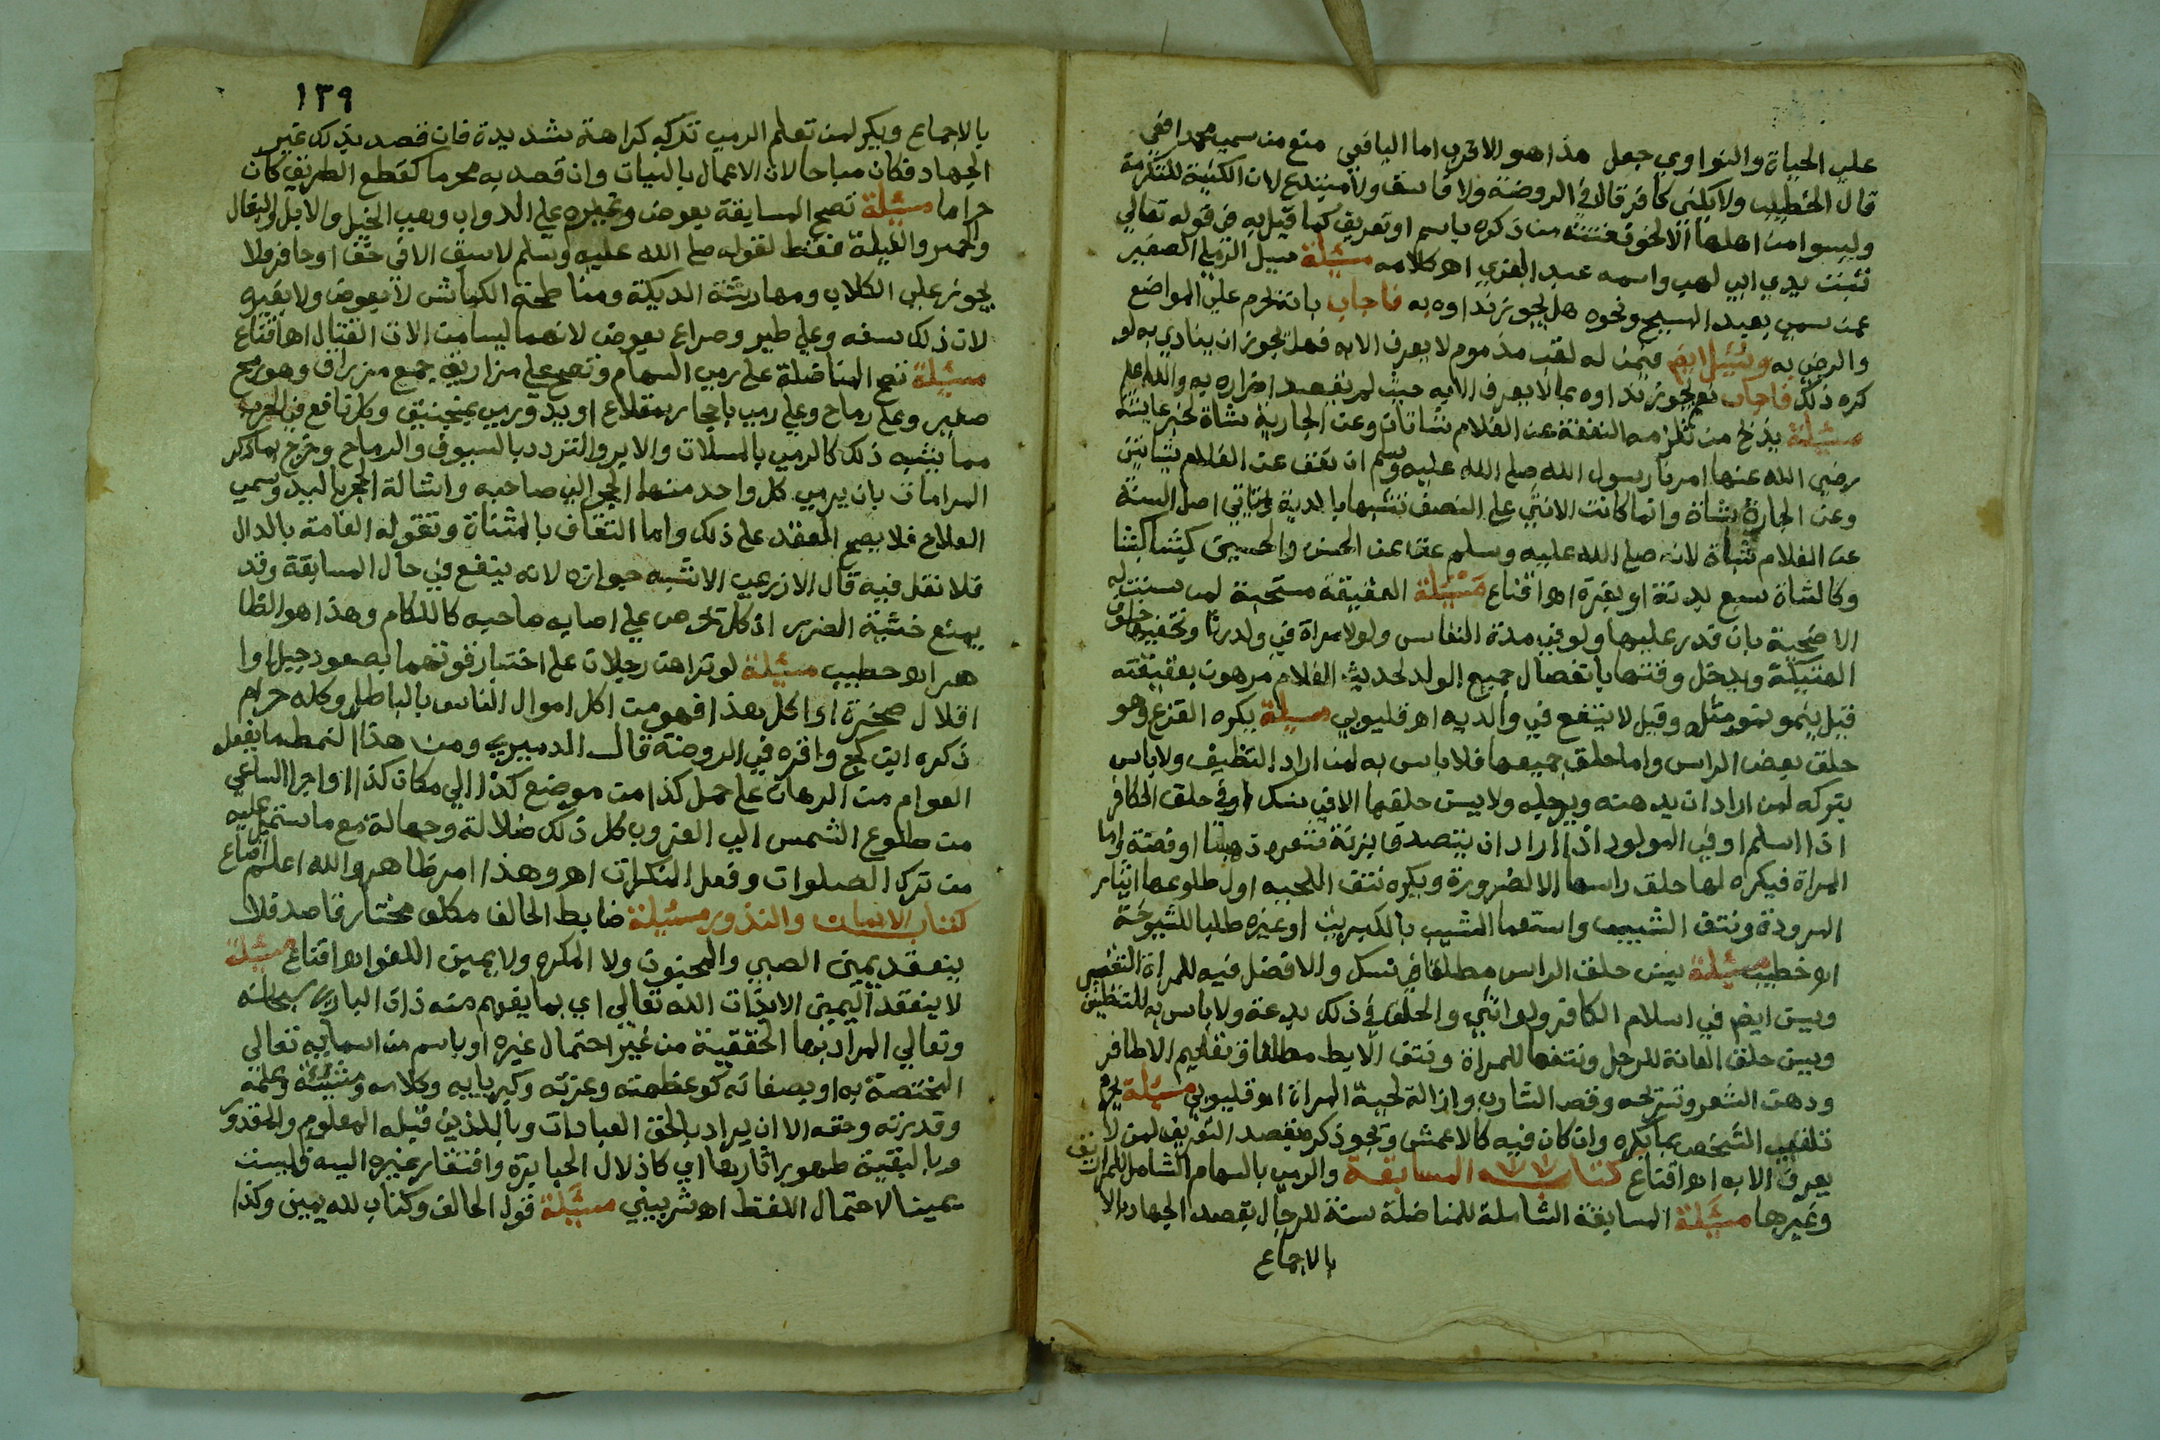 علي الحياة والنواوي جعل هذا هو الاقرب اما اليافعي منع من سمي محمدا فقي
قال الخطيب ولا يكني كافر قال في الروضة ولا فاسق ولا مبتدع لان الكنية للتكرمة
وليسوا من اهلها الا لخوف فتنة من ذكره باسمه او تعريف كما قيل به في قوله تعالي
تبت يدي ابي لهب واسمه عبد العزي اه كلامه مسئلة سيل الرملي الصغير
عمن سمي بعبد المسيح ونحوه هل يجوز نداوه به فاجاب بانه يحرم علي المواضع
والرضي به وسئل ايضا عمن له لقب مذموم لا يعرف الا به فهل يجوز ان ينادي به لو
كره ذلك فاجاب نعم يجوز نداوه بما لا يعرف الا به حيث لم يقصد اضراره به والله اعلم
مسئلة يذبح من تلزمه النفقة عن الغلام شاتان وعن الجارية شاة لخبر عايشة
رضي الله عنها امرنا رسول الله صلي الله عليه وسلم ان نعق عن الغلام بشاتين
وعن الجارية بشاة وانما كانت الانثي علي النصف تشبيها بالدية وتتاتي اصل السنة
عن الغلام بشاة لانه صلي الله عليه وسلم عق عن الحسن والحسين كبشا كبشا
وكالشاة سبع بدنة او بقرة اه اقناع مسئلة العقيقة مستحبة لمن سنت له
الاضحية بان قدر عليها ولو في مدة النفاس ولولا مراة في ولد زنا وتخفيها خوف
الهتيكة ويدخل وقتها بانفصال جميع الولد لحديث الغلام مرهون بعقيقته
قيل ينمو نمو مثله وقيل لا يشفع في والديه اه قليوبي مسيلة يكره القزع وهو
حلق بعض الراس واما حلق جميعها فلا باس به لمن اراد التنظيف ولا باس
بتركه لمن اراد ان يدهنه ويرجله ولا يسن حلقها الا في نسك او في حلق الكافر
اذا اسلم او في المولود اذا اراد ان يتصدق بزنة شعره ذهبا او فضة واما
المراة فيكره لها حلق راسها الا لضرورة ويكره نتف اللحية اول طلوعها ايثار
المرودة ونتف الشيب واستعما الشيب بالكبريت او غيره طلبا للشيوخة
اه خطيب مسيلة يسن حلق الراس مطلقا في نسك والافضل فيه للمراة التقصير
ويسن ايضا في اسلام الكافر ولو انثي والحلق في ذلك بدعة ولا باس به للتنظيف
ويسن حلق العانة للرجل ونتفها للمراة ونتف الابط مطلقا وتقليم الاظافر
ودهن الشعر وتسريحه وقص الشارب وازالة لحية المراة اه قليوبي مسيلة يحرم
تلقيب الشخص بما يكره وان كان فيه كالاعمش ويجوز ذكره بقصد التعريف لمن لا
يعرف الا به اه اقناع كتاب المسابقة والرمي بالسهام الشامل للمزاريق
وغيرها مسئلة المسابقة الشاملة للمناضلة سنة للرجال بقصد الجهاد والا
بالاجماع
١٣٩
بالاجماع ويكره لمن تعلم الرمي تركه كراهة شديدة فان قصد بذلك غير
الجهاد فكان مباحا لان الاعمال بالنيات وان قصد به محرما كقطع الطريق كان
حراما مسئلة تصح المسابقة بعوض وغيره علي الدواب وهي الخيل والابل والبغال
والحمر والفيلة فقط لقوله صلي الله عليه وسلم لا سبق الا في خف او حافر ولا
يجوز علي الكلاب ومهارشة الديكة ومناطحة الكباش لا بعوض ولا بغيره
لان ذلك سفه وعلي طير وصراع بعوض لانهما ليسا من الات القتال اه اقناع
مسئلة تصح المناضلة علي رمي السهام وتصح علي مزاريق جمع مزراق وهو رمح
صغير وعلي رماح وعلي رمي باحجار بمقلاع او بيد ورمي بمنجنيق وكل نافع في الحرب
مما يشبه ذلك كالرمي بالمسلات والابر والتردد بالسيوف والرماح وخرج بما ذكر
المرامات بان يرمي كل واحد منهما الحجر الي صاحبه واشالة الحجر باليد وسمي
العلاج فلا يصح العقد علي ذلك واما التقاف بالمثناة وتقوله العامة بالدال
فلا نقل فيه قال الاذرعي الاشبه جوازه لانه ينفع في حال المسابقة وقد
يمنع خشية الضرر اذ كل يحرص علي اصابه صاحبه كاللكام وهذا هو الظا
هر اه خطيب مسئلة لو تراهن رجلان علي اختبار قوتهما بصعود جبل او ا
اقلال صخرة او اكل كذا فهو من اكل اموال الناس بالباطل وكله حرام
ذكره ابن كج واقره في الروضة قال الدميري ومن هذا النمط ما يفعله
العوام من الرهان علي حمل كذا من موضع كذا الي مكان كذا او اجرا الساعي
من طلوع الشمس الي الغروب كل ذلك ضلالة وجهالة مع ما يشتمل عليه
من ترك الصلوات وفعل المنكرات اه وهذا امر ظاهر والله اعلم اقناع
كتاب الايمان والنذور مسئلة ضابط الحالف مكلف مختار قاصد فلا
ينعقد يمين الصبي والمجنون ولا المكره ولا يمين اللغو اه اقناع مسئلة
لا ينعقد اليمين الا بذات الله تعالي اي بما يفهم منه ذات الباري سبحانه
وتعالي المراد بها الحقيقة من غير احتمال غيره او باسم من اسمايه تعالي
المختصة به او بصفاته كوعظمته وعزته وكبريايه وكلامه ومشيئته وعلمه
وقدرته وحقه الا ان يراد بالحق العبادات وباللذين قبله المعلوم والمقدور
وبالبقية ظهور اثارها اي كاذلال الجبابرة وافتقار غيره اليه فليست
يمينا لاحتمال اللفظ اه شربيني مسئلة قول الحالف وكتاب لله يمين وكذا